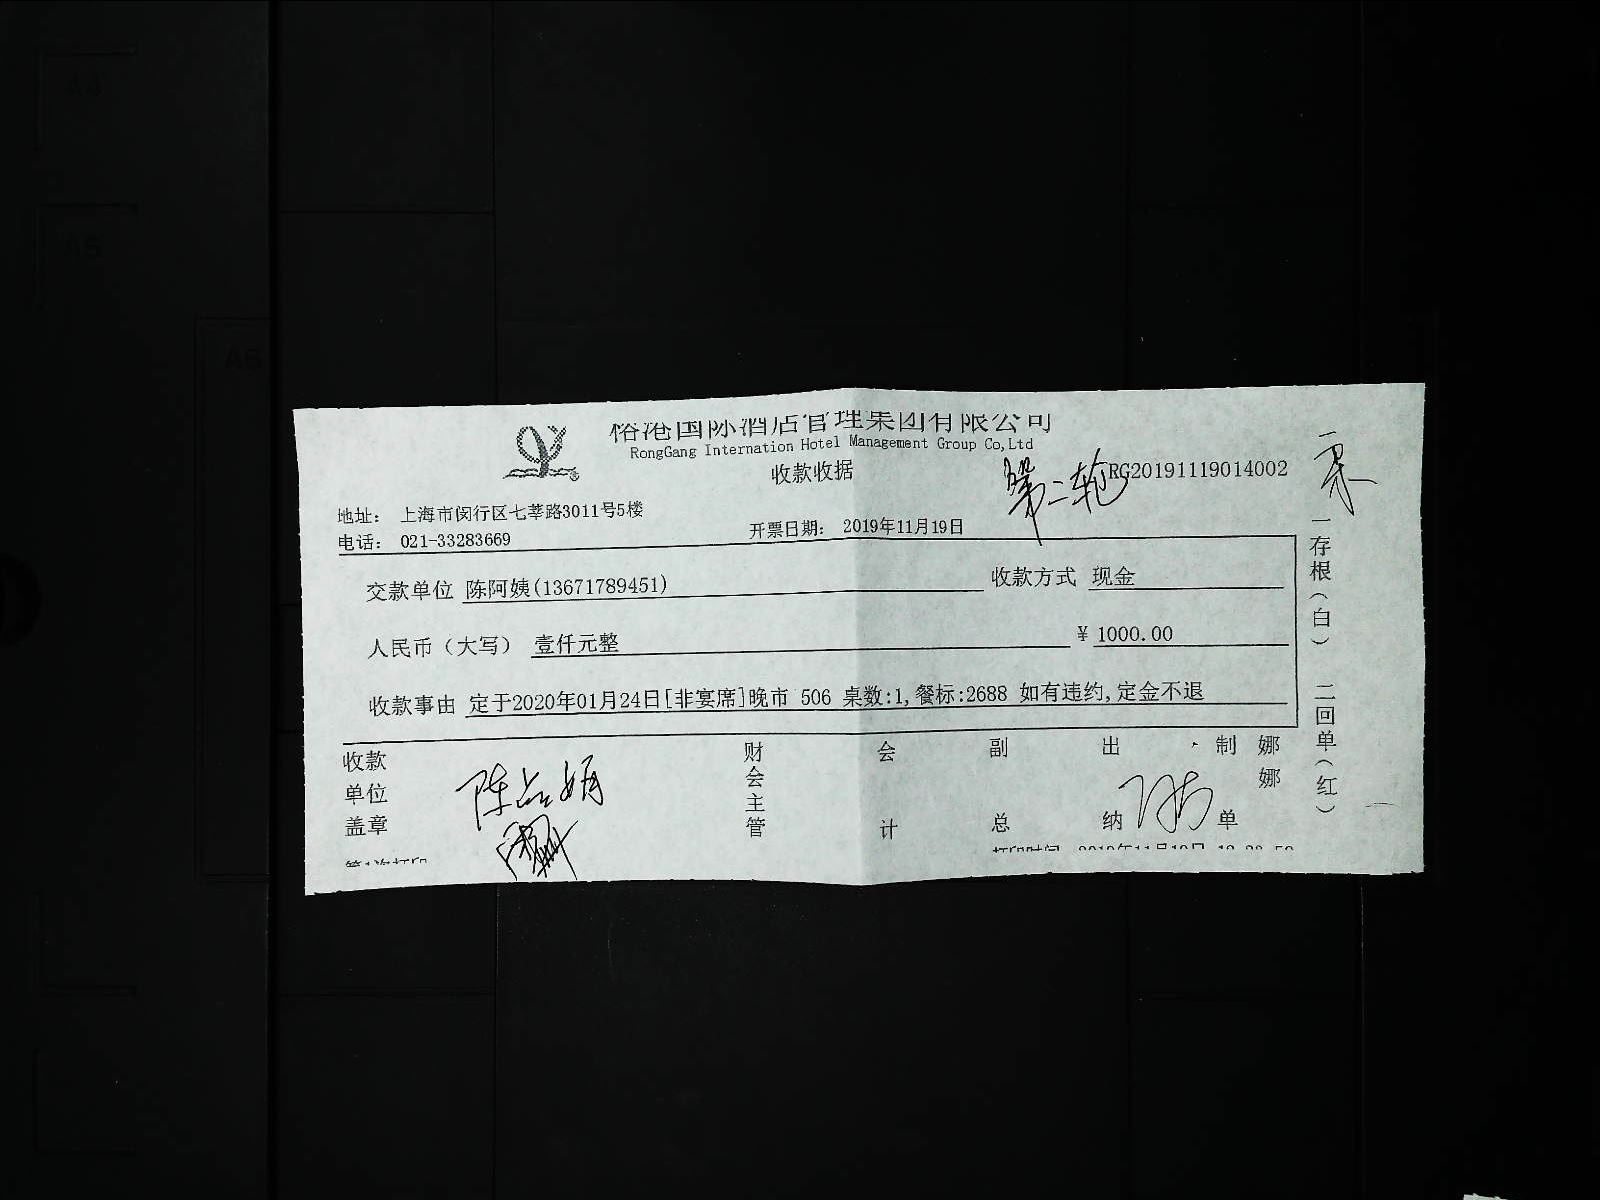 裕港国际酒店管理集团有限公司
RongGang Internation Hotel Management Group Co,Ltd
收款收据
第二轮
RG20191119014002
地址： 上海市闵行区七莘路3011号5楼
电话： 021-33283669
开票日期： 2019年11月19日
交款单位 陈阿姨(13671789451)
收款方式 现金
人民币（大写） 壹仟元整
¥ 1000.00
收款事由 定于2020年01月24日[非宴席]晚市 506 桌数:1,餐标:2688 如有违约,定金不退
一存根（白） 二回单（红）
收款单位盖章
财会主管
会计
副总
出纳
制单
娜娜
第1次打印
A4
A5
A6